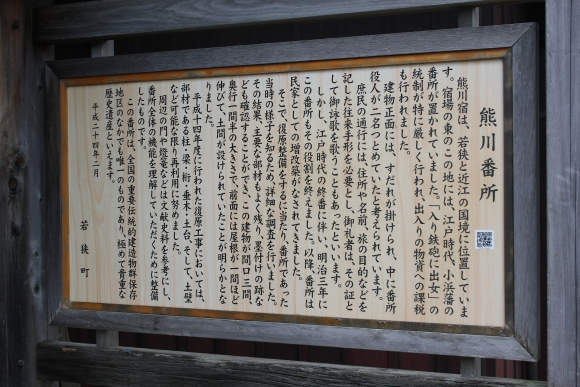 熊川番所
熊川宿は、若狭と近江の国境に位置していま
す。宿場の東のこの地には、江戸時代、小浜藩の
番所が置かれていました。「入り鉄砲に出女」の
統制が特に厳しく行われ、出入りの物資への課税
も行われました。
建物正面には、すだれが掛けられ、中に番所
役人が二名つとめていたと考えられています。
庶民の通行には、住所や名前、旅の目的などを
記した往来手形を必要とし、御札者は、その証と
して御詠歌を歌うこともあったといいます。
しかし、江戸時代の終番に伴い、明治三年に
この番所もその役割を終えました。以降、番所は
民家としての増改築がなされてきました。
そこで、復原整備をするに当たり、番所であった
当時の様子を知るため、詳細な調査を行いました。
その結果、主要な部材もよく残り、墨付けの跡な
ども確認することができ、この建物が間口三間、
奥行一間半の大きさで、前面には屋根が一間ほど
伸びて、土間が設けられていたことが明らかとな
りました。
平成十四年度に行われた復原工事においては、
部材である柱・梁・桁・垂木・土台、そして、土壁
など可能な限り再利用に努めました。
周辺の門や燈篭などは文献史料を参考にし、
番所全体の機能を理解していただくために整備
したものです。
この番所は、全国の重要伝統的建造物群保存
地区のなかでも唯一のものであり、極めて貴重な
歴史遺産といえます。
平成二十四年二月
若狭町